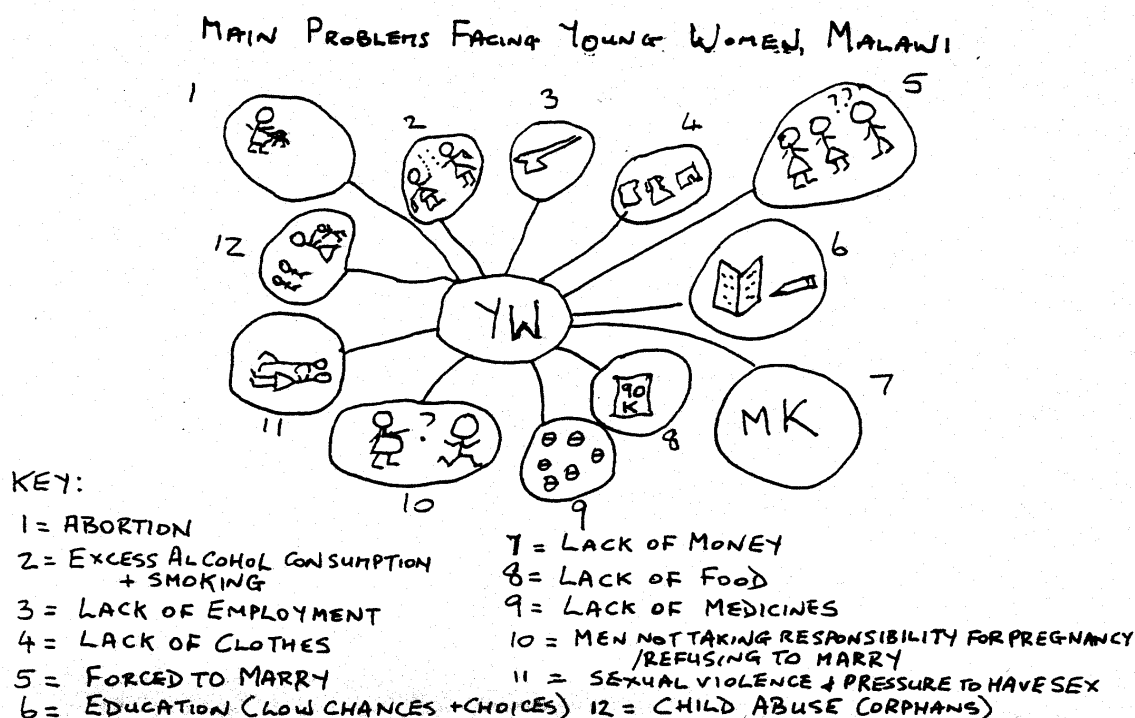 MAIN PROBLEMS FACING YOUNG WOMEN, MALAWI
1
2
3
4
5
??
6
12
YW
7
MK
90
K
8
11
?
10
9
KEY:
1 = ABORTION
2 = EXCESS ALCOHOL CONSUMPTION
+ SMOKING
3 = LACK OF EMPLOYMENT
4 = LACK OF CLOTHES
5 = FORCED TO MARRY
6 = EDUCATION (LOW CHANCES + CHOICES)
7 = LACK OF MONEY
8 = LACK OF FOOD
9 = LACK OF MEDICINES
10 = MEN NOT TAKING RESPONSIBILITY FOR PREGNANCY
/REFUSING TO MARRY
11 = SEXUAL VIOLENCE & PRESSURE TO HAVE SEX
12 = CHILD ABUSE (ORPHANS)